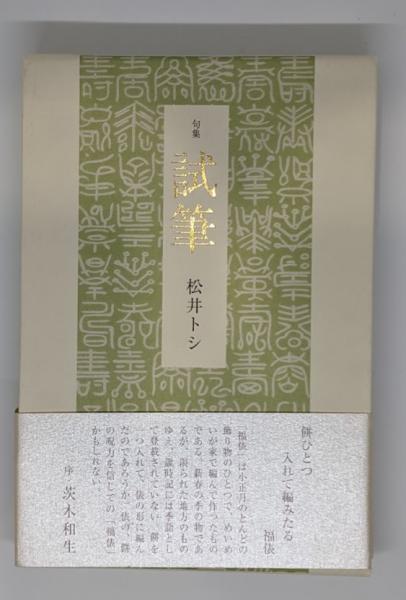 句集
試筆
松井トシ
餅ひとつ
入れて編みたる
福俵
「福俵」は小正月のとんどの
飾り物のひとつで、めいめ
いが家で編んで作ったもの
である。新春の季の物であ
るが、限られた地方のもの
ゆえ、歳時記には季語とし
て登載されていない。餅を
一つ入れて、俵の形に編ん
だのであろうか。俵が、餅
の呪力を信じての「福俵」
かもしれない。
序 茨木和生